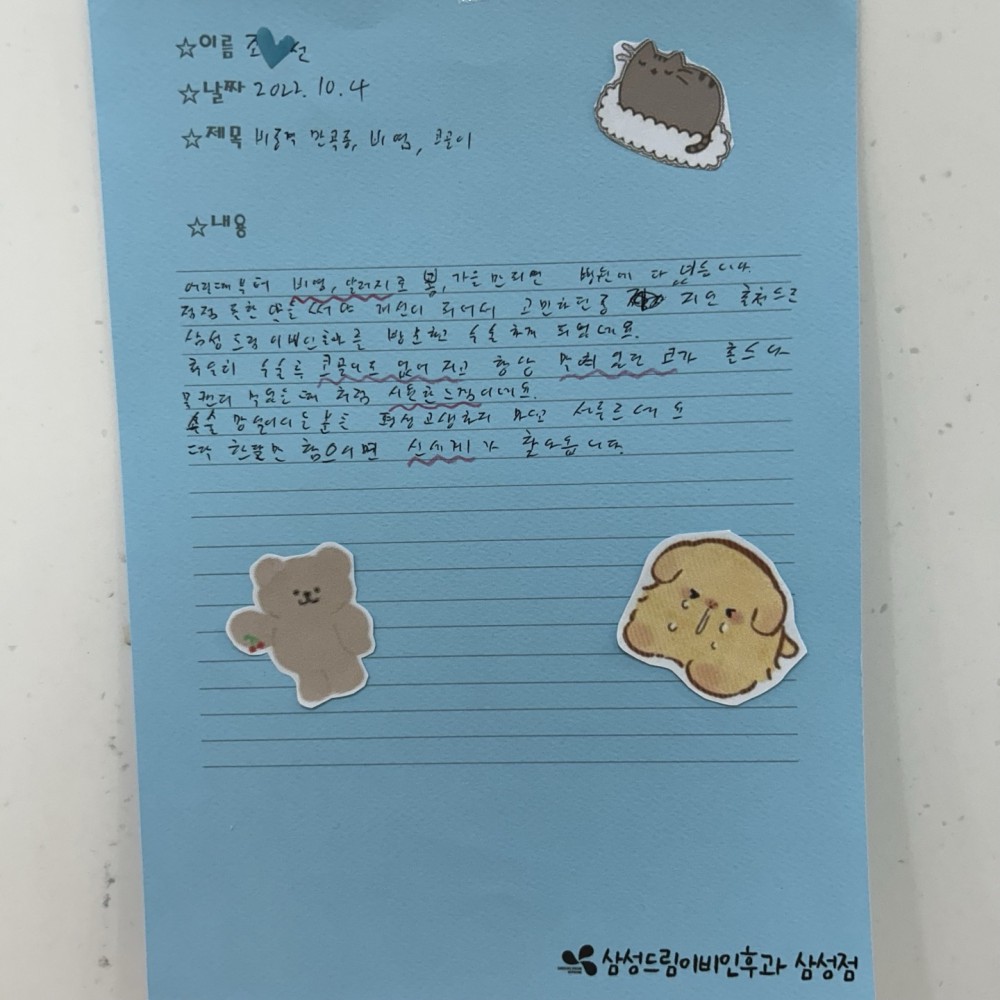 ☆이름 조 선
☆날짜 2022. 10. 4
☆제목 비중격 만곡증, 비염, 코골이
☆내용
어릴때부터 비염, 알러지로 봄, 가을만 되면 병원에 다녔습니다.
점점 독한 약을 써야 개선이 되어서 고민하던 중 지인 추천으로
삼성드림이비인후과를 방문하고 수술하게 되었네요.
확실히 수술후 코골이도 없어지고 항상 막혀있던 코가 콘스나
목캔디 먹었을때 처럼 시원한 느낌이네요.
수술 망설이시는분들 평생고생하지 마시고 서두르세요
딱 한달만 참으시면 신세계가 활짝옵니다.
삼성드림이비인후과 삼성점